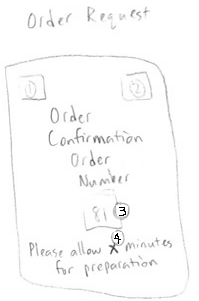 Order Request
① ②
Order
Confirmation
Order
Number
81 ③
④
Please allow X minutes
for preparation